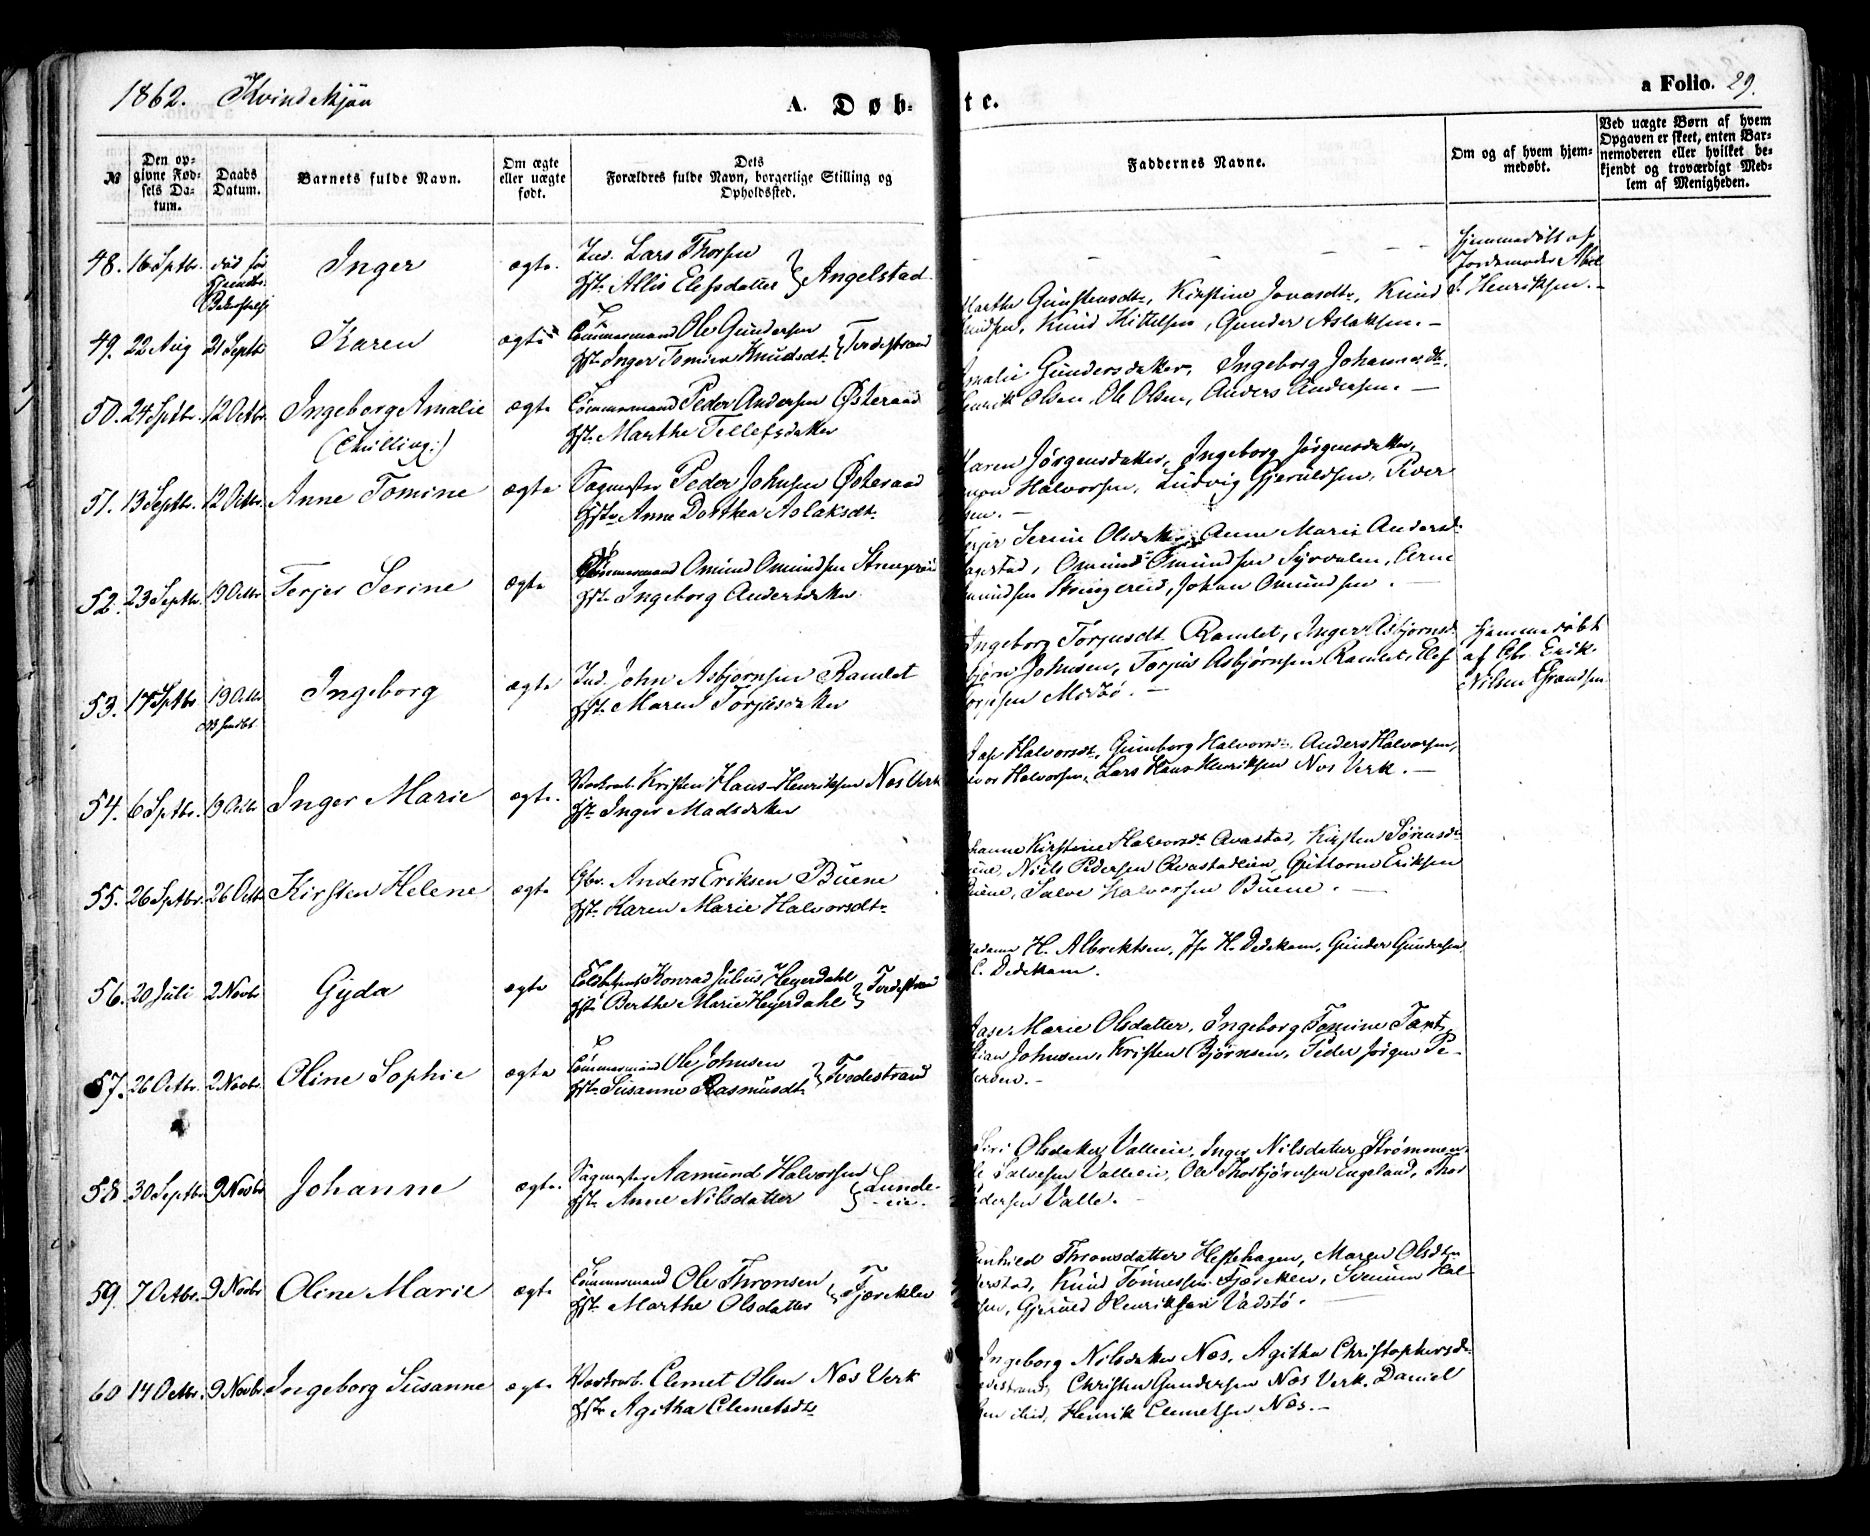 1862. Kvindekjøn
A. Døbte.
a Folio. 29.
№
Den opgivne Fødsels Datum.
Daabs Datum.
Barnets fulde Navn.
Om ægte eller uægte født.
Dets Forældres fulde Navn, borgerlige Stilling og Opholdssted.
Faddernes Navne.
Om og af hvem hjemmedøbt.
Ved uægte Børn af hvem Opgaven er skeet, enten Barnemoderen eller hvilket bekjendt og troværdigt Medlem af Menigheden.
48. 16 Septbr. død før Inger ægte. Ind. Lars Thorsen
Hst. Allis Elefsdatter } Angelstad
Hjemmedøbt af
Jordemoder
Henriksen.
49. 22 Aug 21 Septbr Karen ægte Tømmermand Ole Gundersen
Hst. Inger Tomine Knudsdt. } Tvedestrand
Marthe Gunstensdt., Kirstine Jonasdt., Knud
Knud Kittelsen, Gunder Aslaksen.
50. 24 Septbr. 12 Octbr. Ingeborg Amalie ægte Tømmermand Peder Andersen Østeraad
(Tvilling.) Hst. Marthe Tellefsdatter
Gundersdatter, Ingeborg Johannesdt.
Henrik Olsen, Ole Olsen, Anders Andersen.
51. 13 Septbr. 12 Octbr. Anne Tomine ægte Sagmester Peder Johnsen Østeraad
Hst. Anne Dorthea Aslaksdt.
Maren Jørgensdatter, Ingeborg Jørgensdatter,
Halvorsen, Ludvig Gjeruldsen, Peder
52. 23 Septbr. 19 Octbr. Terjer Serine ægte Tømmermand Omund Omundsen Strengereid
Hst. Ingeborg Andersdatter
Serine Olsdatter, Anne Marie Andersdt.
Omund Omundsen Syrdalen, Arne
Strengereid, Johan Omundsen.
53. 17 Septbr 19 Octbr Ingeborg ægte Ind. John Asbjørnsen Ramlet
Hst. Maren Torjusdatter
Ingeborg Torjusdt. Ramlet, Inger Asbjørnsdt.
Johnsen, Torjus Asbjørnsen Ramlet, Elef
hjemmedøbt
af Gbr. Erik
Nilsen
54. 6 Septbr. 19 Octbr Inger Marie ægte. Kristen Hans Henriksen Næs Verk
Hst. Inger Madsdatter
Halvorsdt., Gunborg Halvorsdt. Anders Halvorsen,
Halvorsen, Lars Hans Henriksen Næs Verk.
55. 26 Septbr. 26 Octbr Kirsten Helene ægte Gbr. Anders Eriksen Buene
Hst. Karen Marie Halvorsdt.
Kirstine Halvorsdt. Qvastad, Kirsten Sørensdt.
Niels Pedersen Qvastadeien, Guttorm Eriksen
Buene, Salve Halvorsen Buene.
56. 20 Juli 2 Novbr Gyda ægte Konrad Julius Heyerdahl
Hst. Berthe Marie Heyerdahl } Tvedestrand
H. Albrektsen, Jfr H. Dedekam, Gunder Gundersen
C. Dedekam.
57. 26 Octbr. 2 Novbr. Oline Sophie ægte Tømmermand Ole Johnsen
Hst. Susanne Rasmusdt. } Tvedestrand
Aase Marie Olsdatter, Ingeborg Tomine
Johnsen, Kristen Bjørnsen, Peder Jørgen Pe-
dersen.
58. 30 Septbr 9 Novbr Johanne ægte. Sagmester Aamund Halvorsen
Hst. Anne Nilsdatter } Lunde-
eie.
Siri Olsdatter Valleeie, Inger Nilsdatter Strømmen
Salvesen Valleeie, Ole Thorbjørnsen Engeland, Thor
Pedersen Valle.
59. 7 Octbr. 9 Novbr Oline Marie ægte Tømmermand Ole Thronsen
Hst. Marthe Olsdatter } Fjærekilen
Gunhild Thronsdatter Hestehagen, Maren Olsdtr
Knud Tønnessen Fjærekilen, Svenum Hal-
Gjeruld Henriksen Vadstø.
60 14 Octbr. 9 Novbr. Ingeborg Susanne ægte Clemet Olsen Næs Verk
Hst. Agitha Clemetsdt.
Ingeborg Nilsdatter Næs, Agitha Christophersdt.
Christen Gundersen Næs Verk, Daniel
Henrik Clemetsen Næs.